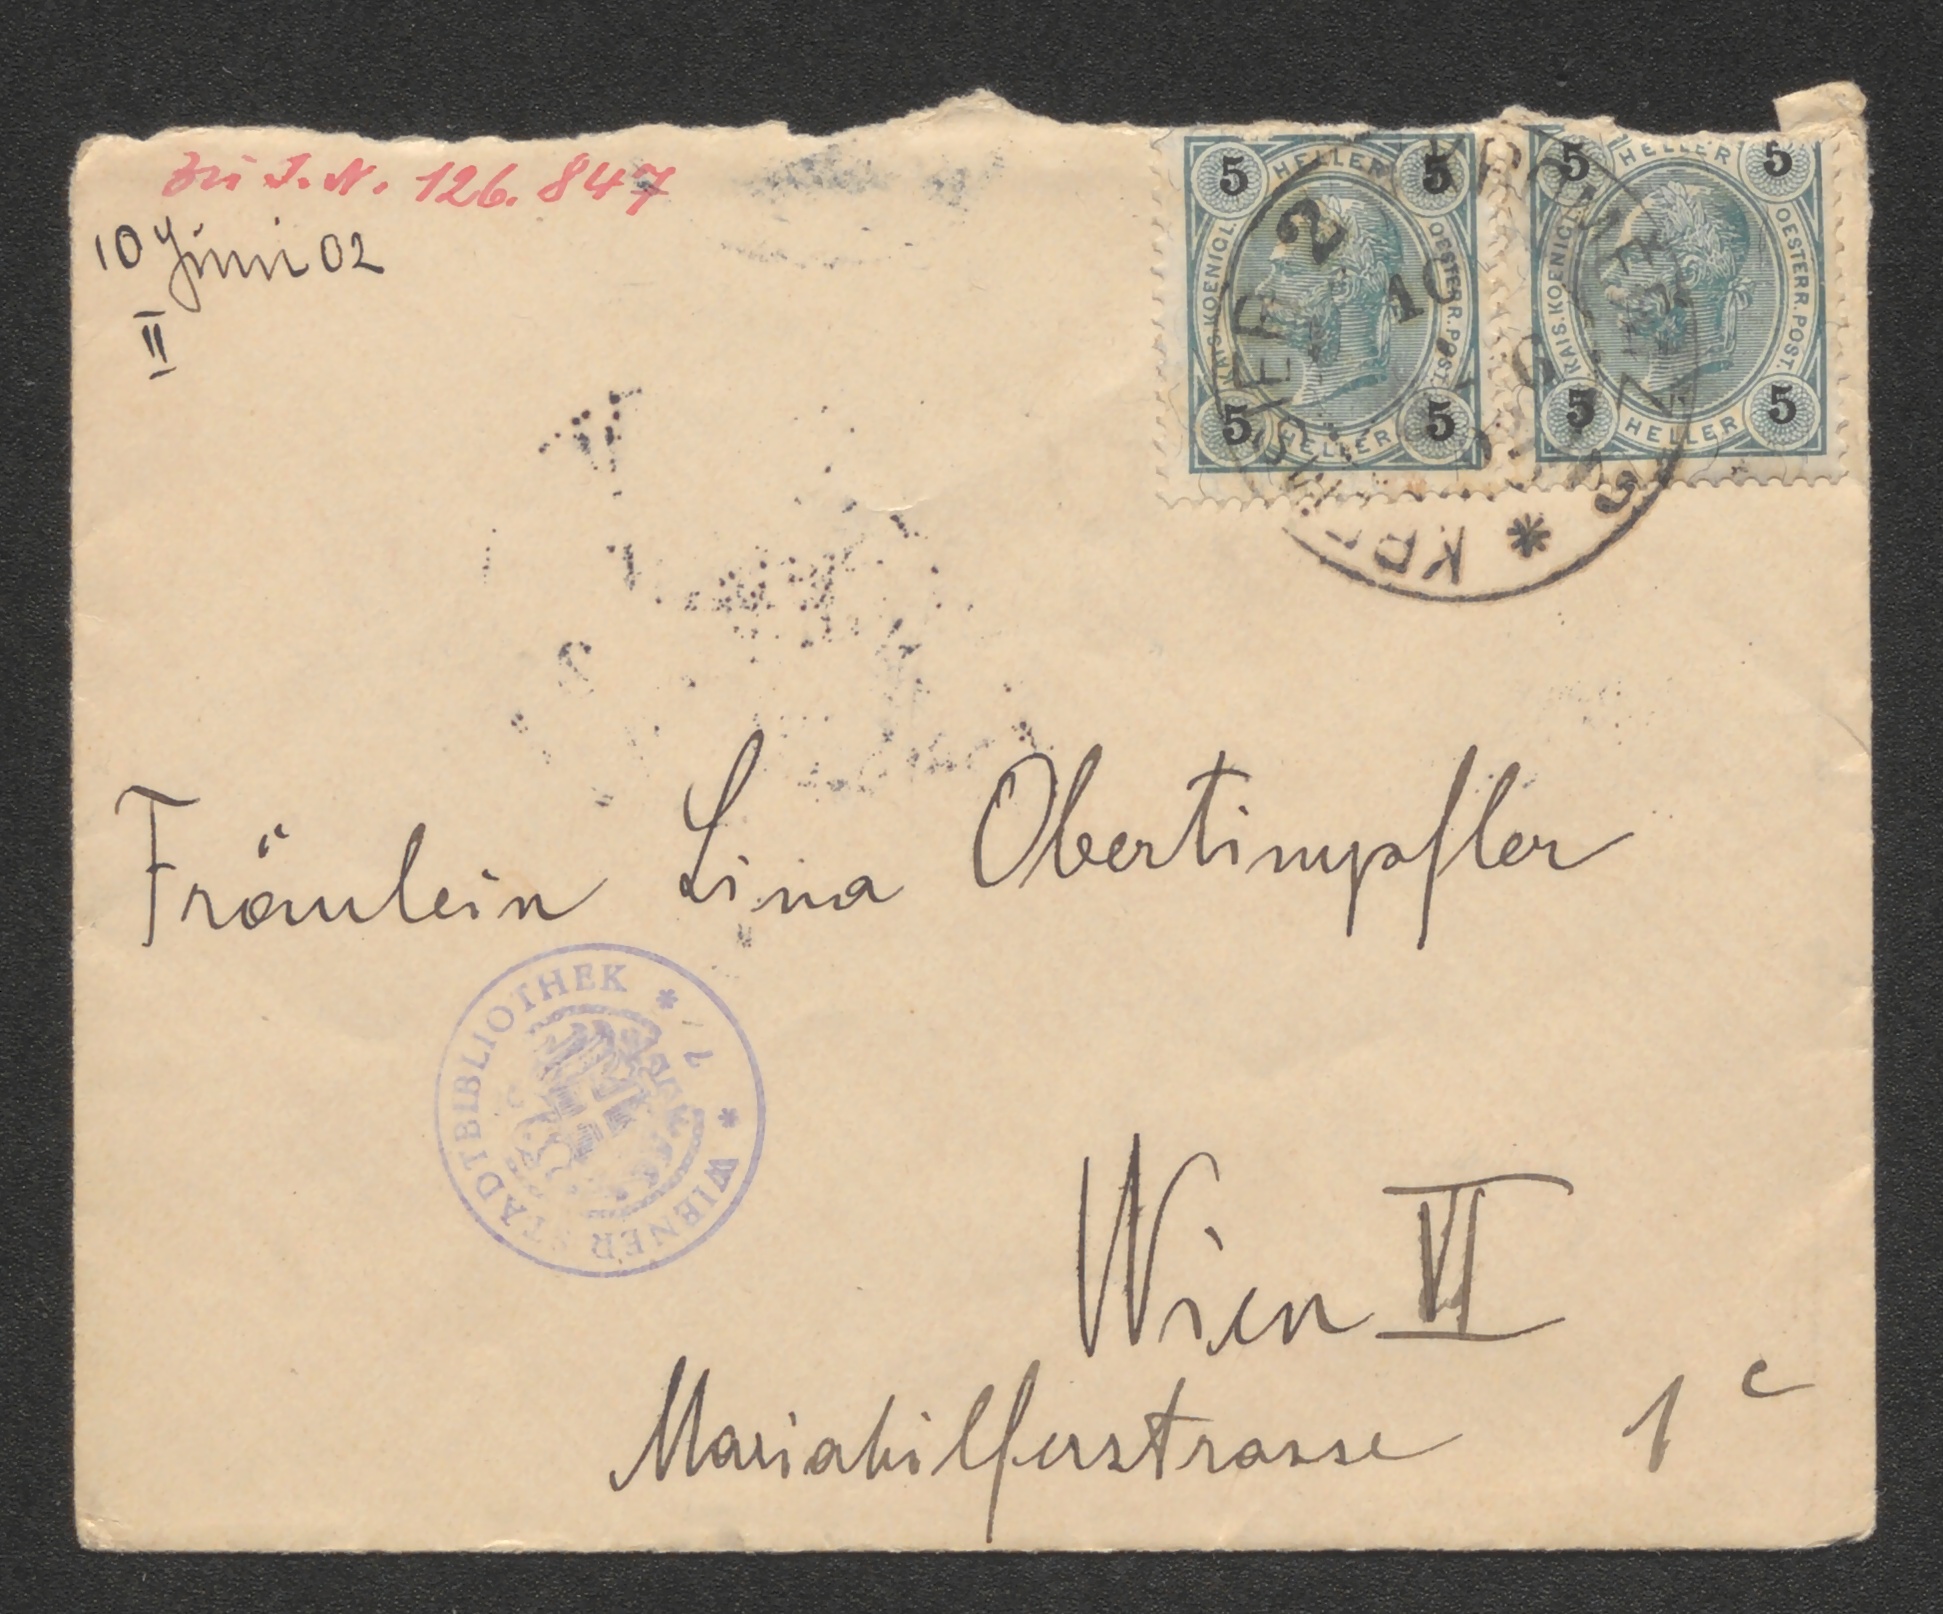 zu I.N. 126.847
10 Juni 02
II
5 HELLER 5
KAIS. KOENIGL. OESTERR. POST.
5 HELLER 5
5 HELLER 5
KAIS. KOENIGL. OESTERR. POST.
5 HELLER 5
Fräulein Lina Obertimpfler
* WIENER STADTBIBLIOTHEK *
Wien VI
Mariahilferstrasse 1c